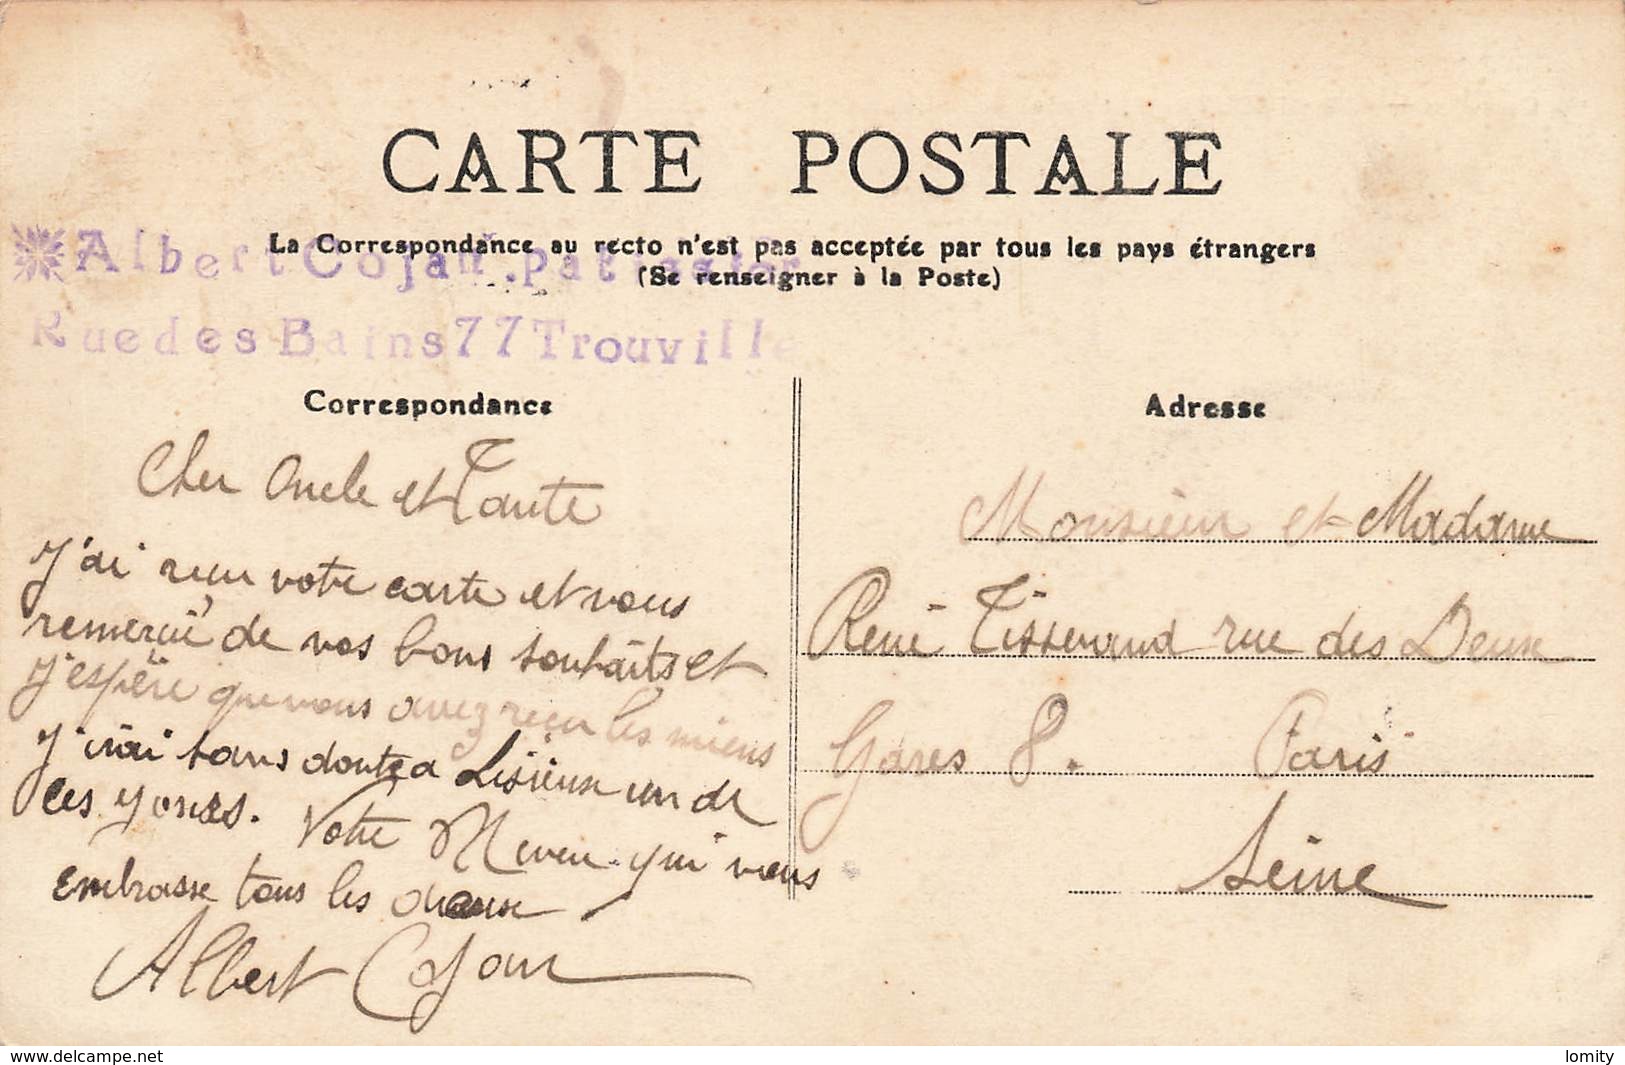 CARTE POSTALE
La Correspondance au recto n'est pas acceptée par tous les pays étrangers
(Se renseigner à la Poste)
Albert Cojan. patissier
Rue des Bains 77 Trouville
Correspondance
Cher Oncle et Tante
J'ai reçu votre carte et vous
remercie de vos bons souhaits et
J'espère que vous avez reçu les miens
J'irai sans doute a Lisieux un de
ces jours. Votre Neveu qui vous
embrasse tous les deux
Albert Cojan
Adresse
Monsieur et Madame
René Tisserand rue des Deux
Gares 8. Paris
Seine
delcampe.net
lomity